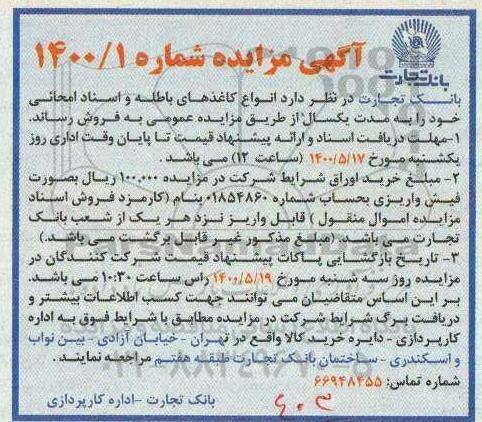 آگهی مزایده شماره ۱۴۰۰/۱
بانک تجارت
بانک تجارت در نظر دارد انواع کاغذهای باطله و اسناد امحائی
خود را به مدت یکسال از طریق مزایده عمومی به فروش رساند.
۱-مهلت دریافت اسناد و ارائه پیشنهاد قیمت تا پایان وقت اداری روز
یکشنبه مورخ ۱۴۰۰/۵/۱۷ (ساعت ۱۲) می باشد .
۲- مبلغ خرید اوراق شرایط شرکت در مزایده ۱۰۰,۰۰۰ ریال بصورت
فیش واریزی بحساب شماره ۰۱۸۵۴۸۶۰ بنام (کارمزد فروش اسناد
مزایده اموال منقول ) قابل واریز نزد هر یک از شعب بانک
تجارت می باشد . (مبلغ مذکور غیر قابل برگشت می باشد.)
۳- تاریخ بازگشایی پاکات پیشنهاد قیمت شرکت کنندگان در
مزایده روز سه شنبه مورخ ۱۴۰۰/۵/۱۹ راس ساعت ۱۰:۳۰ می باشد.
بر این اساس متقاضیان می توانند جهت کسب اطلاعات بیشتر و
دریافت برگ شرایط شرکت در مزایده مطابق با شرایط فوق به اداره
کارپردازی - دایره خرید کالا واقع در تهران - خیابان آزادی - بین نواب
و اسکندری - ساختمان بانک تجارت طبقه هفتم مراجعه نمایند .
شماره تماس: ۶۶۹۴۸۴۵۵
بانک تجارت -اداره کارپردازی
۶۰۳